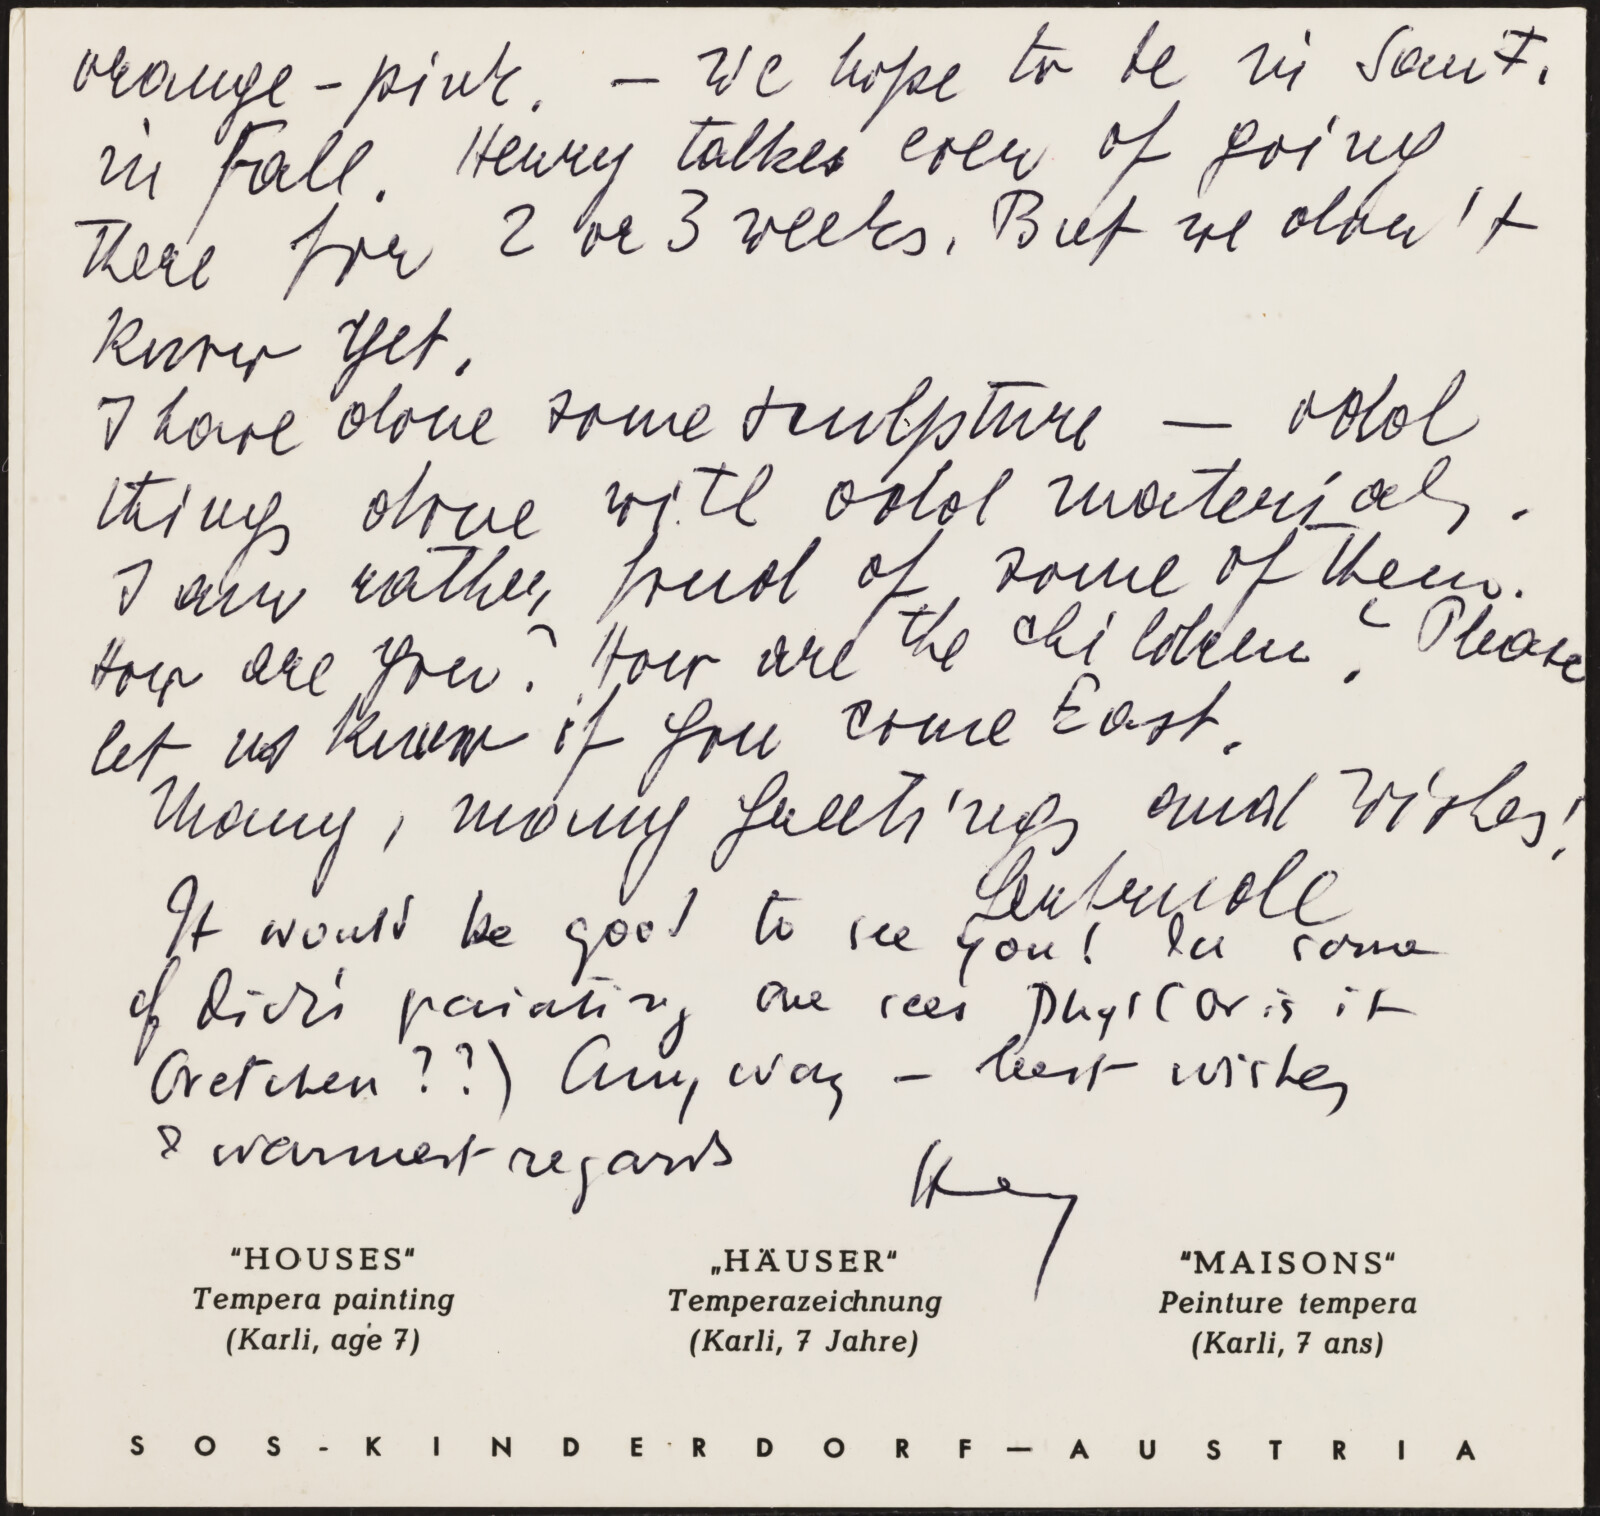 orange-pink. — We hope to be in Sant.
in Fall. Henry talkes even of going
there for 2 or 3 weeks. But we don't
know yet.
I have done some sculpture — odd
things done with odd materials.
I am rather fond of some of them.
How are you? How are the children? Please
let us know if you come East.
Many, many greetings and wishes!
Gertrude
It would be good to see you! In some
of Didi's painting one sees Phyl (or is it
Gretchen??) Anyway — best wishes
& warmest regards
Henry
"HOUSES"
Tempera painting
(Karli, age 7)
„HÄUSER"
Temperazeichnung
(Karli, 7 Jahre)
"MAISONS"
Peinture tempera
(Karli, 7 ans)
SOS-KINDERDORF—AUSTRIA